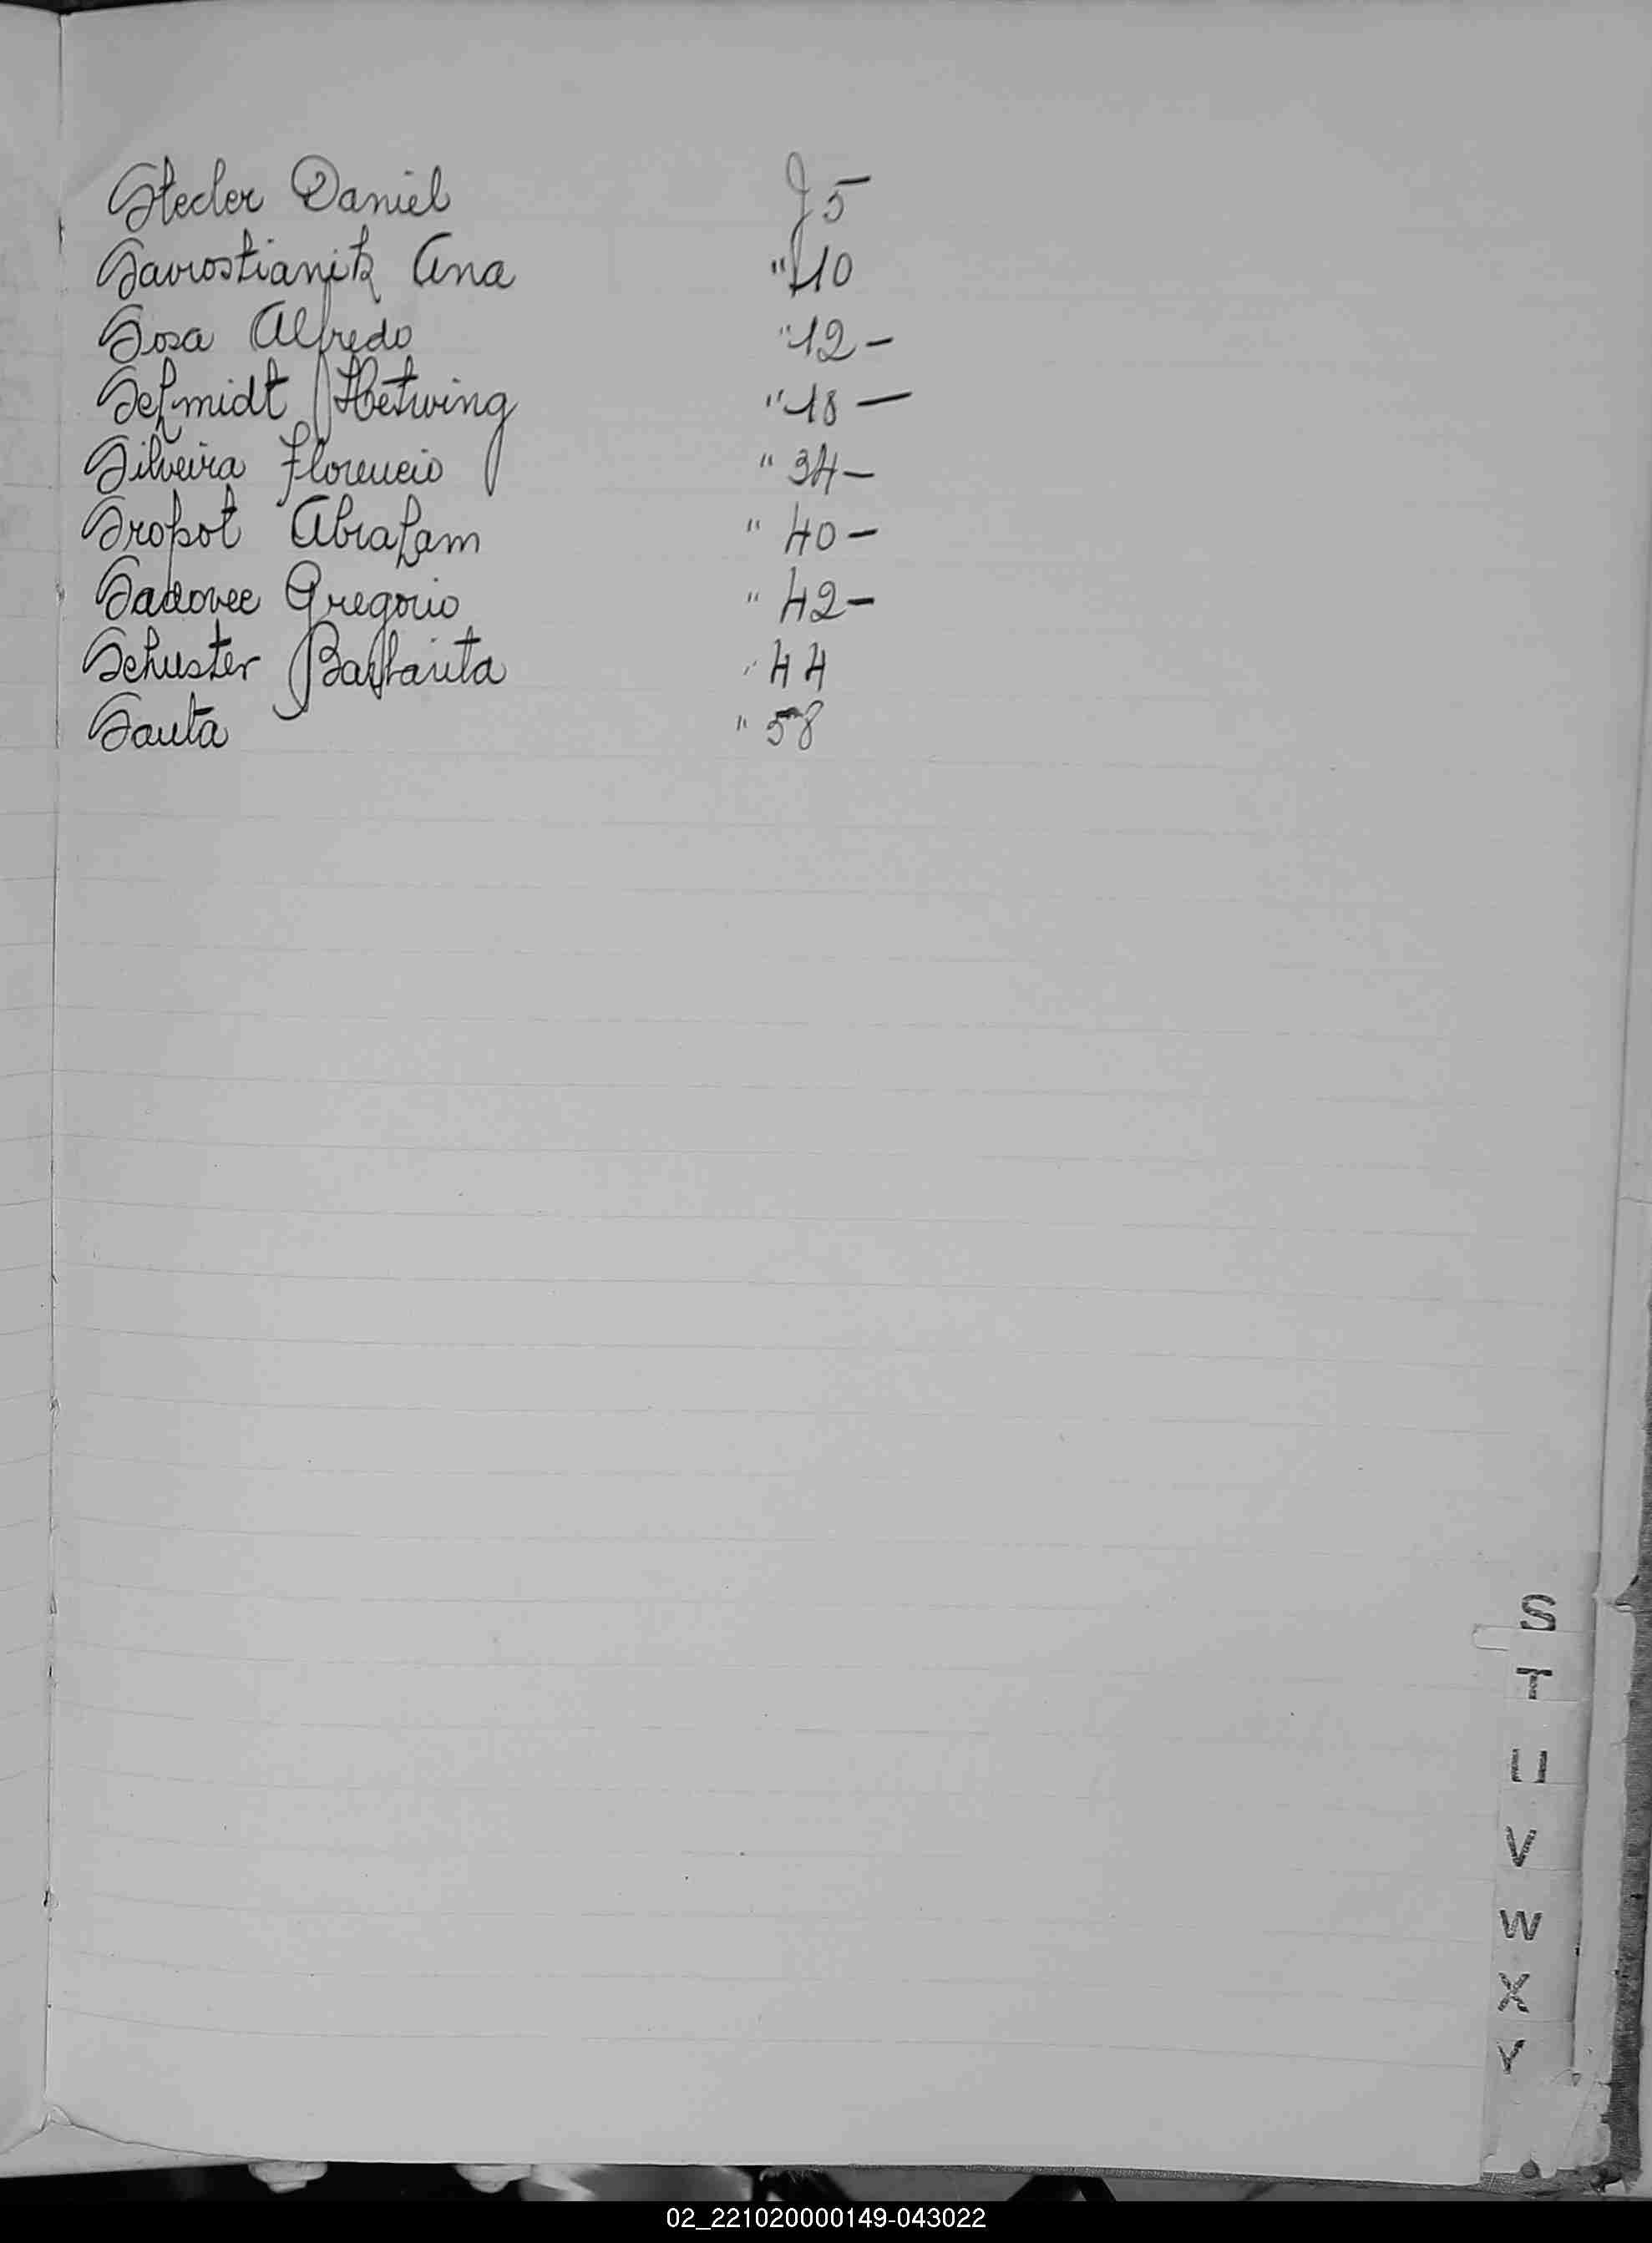 Stecler Daniel f 5 -
Savrostianik Ana " 10
Sosa Alfredo " 12 -
Schmidt Hetwing " 18 -
Silveira Florencio " 34 -
Sropot Abraham " 40 -
Sadovec Gregorio " 42 -
Schuster " 44
Sauta " 58
S
T
U
V
W
X
Y
02_221020000149-043022